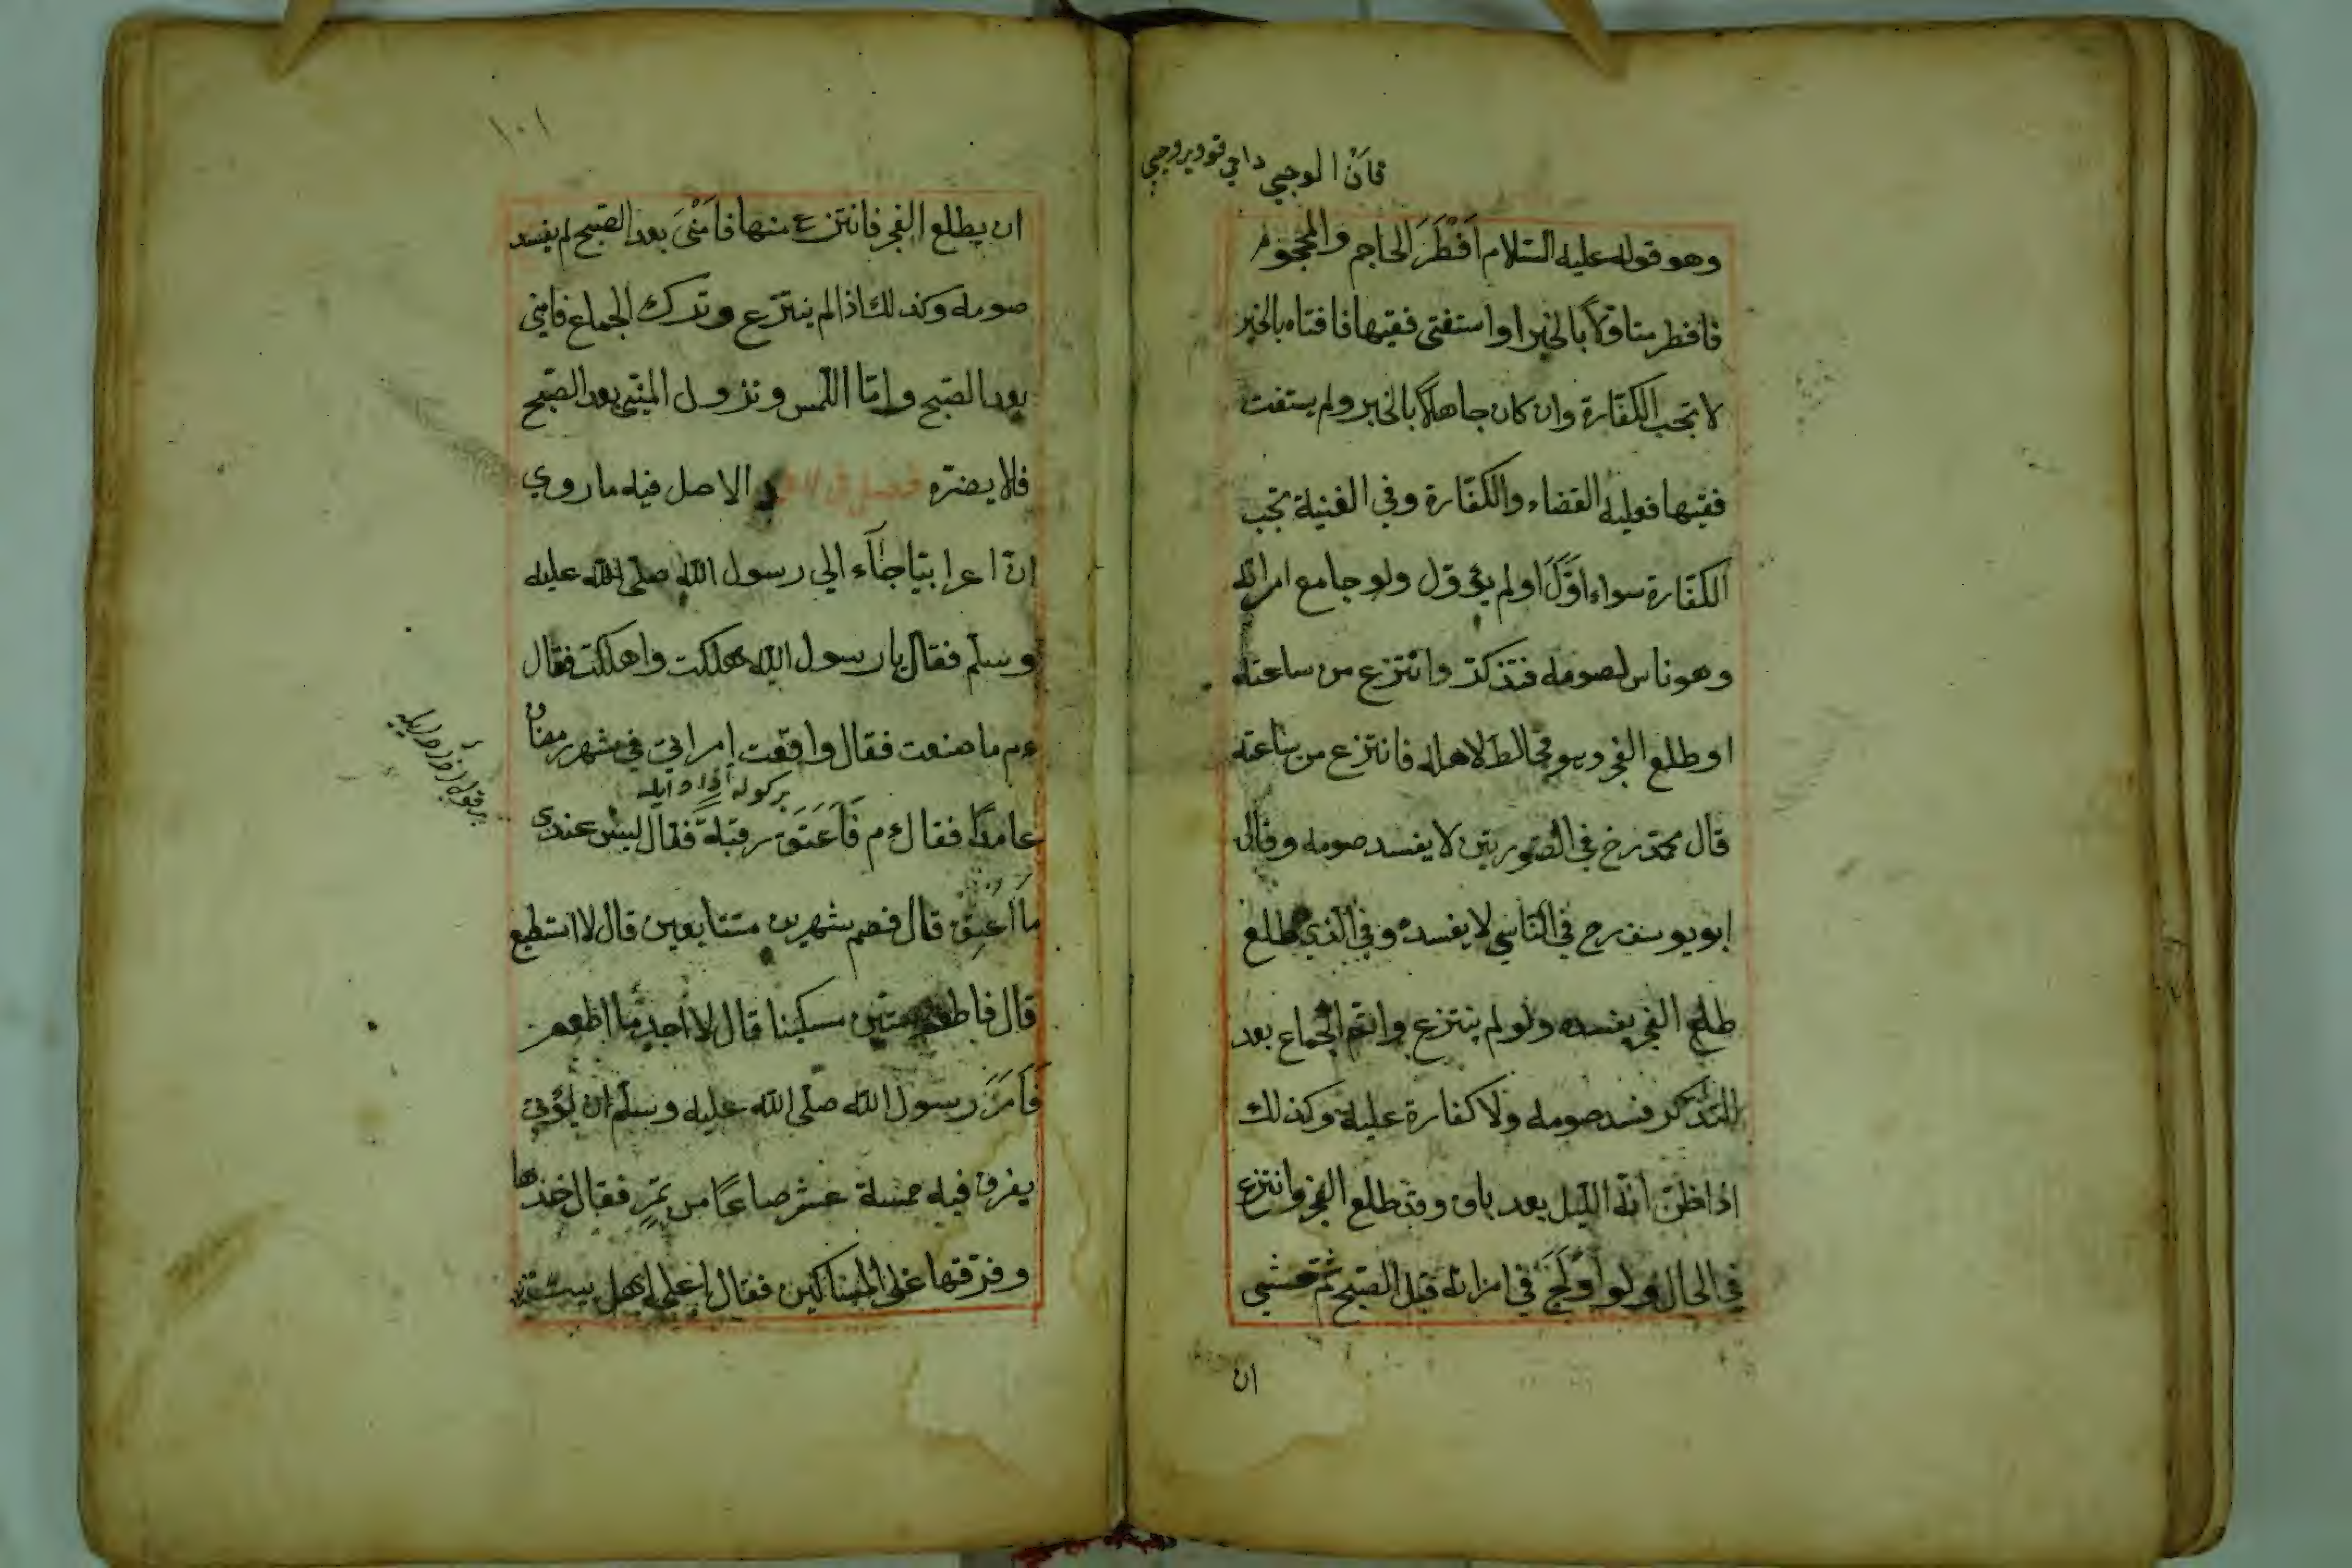 قان الوجبي
وهو قوله عليه السّلام اَفْطَرَ الحاجم والمحجوم
فافطر متاوّلاً بالخبر او استفتى فقيها فافتاه بالخبر
لا تجب الكفّارة وان كان جاهلاً بالخبر ولم يستفت
فقيها فعليه القضاء والكفّارة وفي الغنية تجب
الكفّارة سواء اوّلَ اولم يؤول ولو جامع امراته
وهو ناس لصومه فتذكّر وانتزع من ساعته
او طلع الفجر وهو مخالط لاهله فانتزع من ساعته
قال محمّد رح في الصّورتين لا يفسد صومه وقال
ابو يوسف رح في النّاسي لا يفسده وفي الّذي طلع
طلع الفجر يفسده ولو لم ينتزع واتمّ الجماع بعد
التذكّر فسد صومه ولا كفارة عليه وكذلك
اذا ظنّ انّه اللّيل بعد باق وقد طلع الفجر وانتزع
في الحال ولو اَوْلَجَ في امراته قبل الصّبح ثمّ خشي
ان
١٠١
ان يطلع الفجر فانتزع منها فاَمْنَى بعد الصّبح لم يفسد
صومه وكذلك اذا لم ينتزع وترك الجماع فامنى
بعد الصّبح وامّا اللّمس ونزول المنيّ بعد الصّبح
فلا يضرّه فصل في الاصل فيه ما روي
انّ اعرابيّا جاء الي رسول اللّه صلّى اللّه عليه
وسلّم فقال يا رسول اللّه هلكت واهلكت فقال
عم ما صنعت فقال واقعت امراتي في شهر رمضان
عامدًا فقال عم فَاَعْتِقْ رقبة فقال ليس عندى
ما اُعْتِقُ قال فصم شهرين متتابعين قال لا استطيع
قال فاطعم ستّين مسكينا قال لا اجد ما اطعم
فَاَمَرَ رسول اللّه صلّى اللّه عليه وسلّم ان يؤتى
بفرق فيه خمسة عشر صاعًا من تمرٍ فقال خذها
وفرّقها على المساكين فقال اعلى اهل بيت